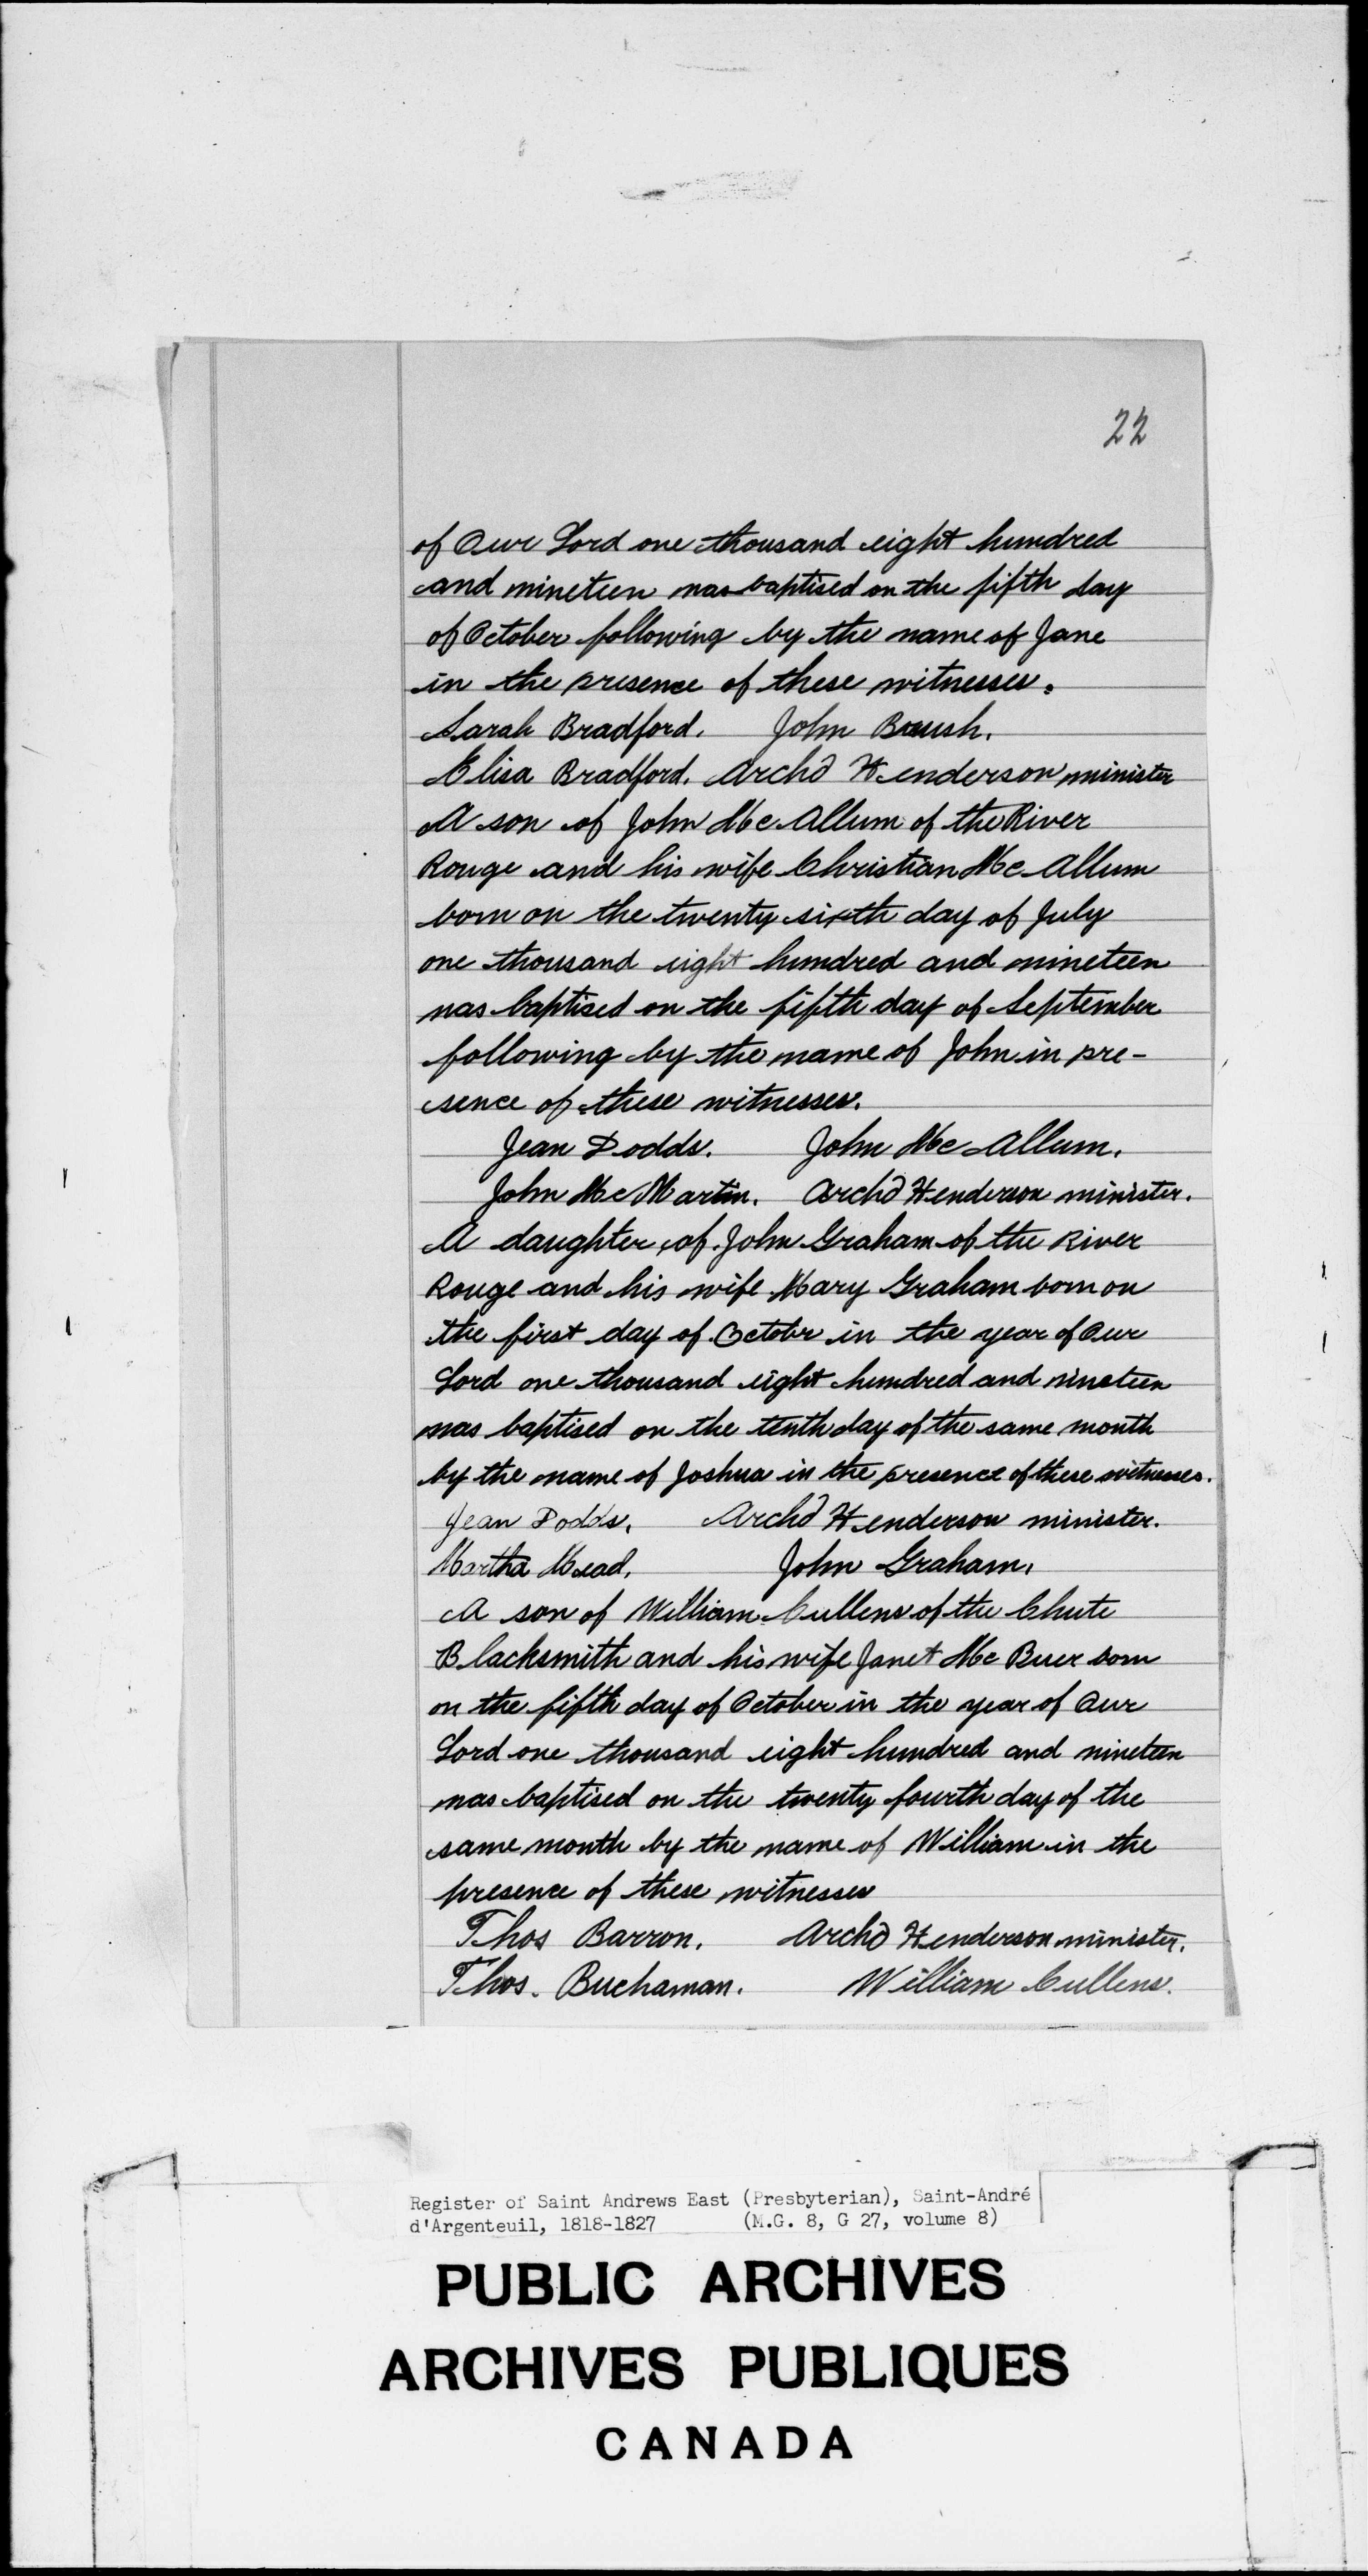 22
of Our Lord one thousand eight hundred
and nineteen was baptised on the fifth day
of October following by the name of Jane
in the presence of these witnesses.
Sarah Bradford. John Brush.
Elisa Bradford. Archd Henderson minister
A son of John McAllum of the River
Rouge and his wife Christian McAllum
born on the twenty sixth day of July
one thousand eight hundred and nineteen
was baptised on the fifth day of September
following by the name of John in pre-
sence of these witnesses.
Jean Dodds. John McAllum.
John McMartin. Archd Henderson minister.
A daughter of John Graham of the River
Rouge and his wife Mary Graham born on
the first day of Octobr in the year of Our
Lord one thousand eight hundred and nineteen
was baptised on the tenth day of the same month
by the name of Joshua in the presence of these witnesses.
Jean Dodds. Archd Henderson minister.
Martha Mead. John Graham.
A son of William Cullens of the Chute
Blacksmith and his wife Janet Mc born
on the fifth day of October in the year of Our
Lord one thousand eight hundred and nineteen
was baptised on the twenty fourth day of the
same month by the name of William in the
presence of these witnesses
Thos Barron. Archd Henderson minister.
Thos. Buchanan. William Cullens.
Register of Saint Andrews East (Presbyterian), Saint-André
d'Argenteuil, 1818-1827 (M.G. 8, G 27, volume 8)
PUBLIC ARCHIVES
ARCHIVES PUBLIQUES
CANADA